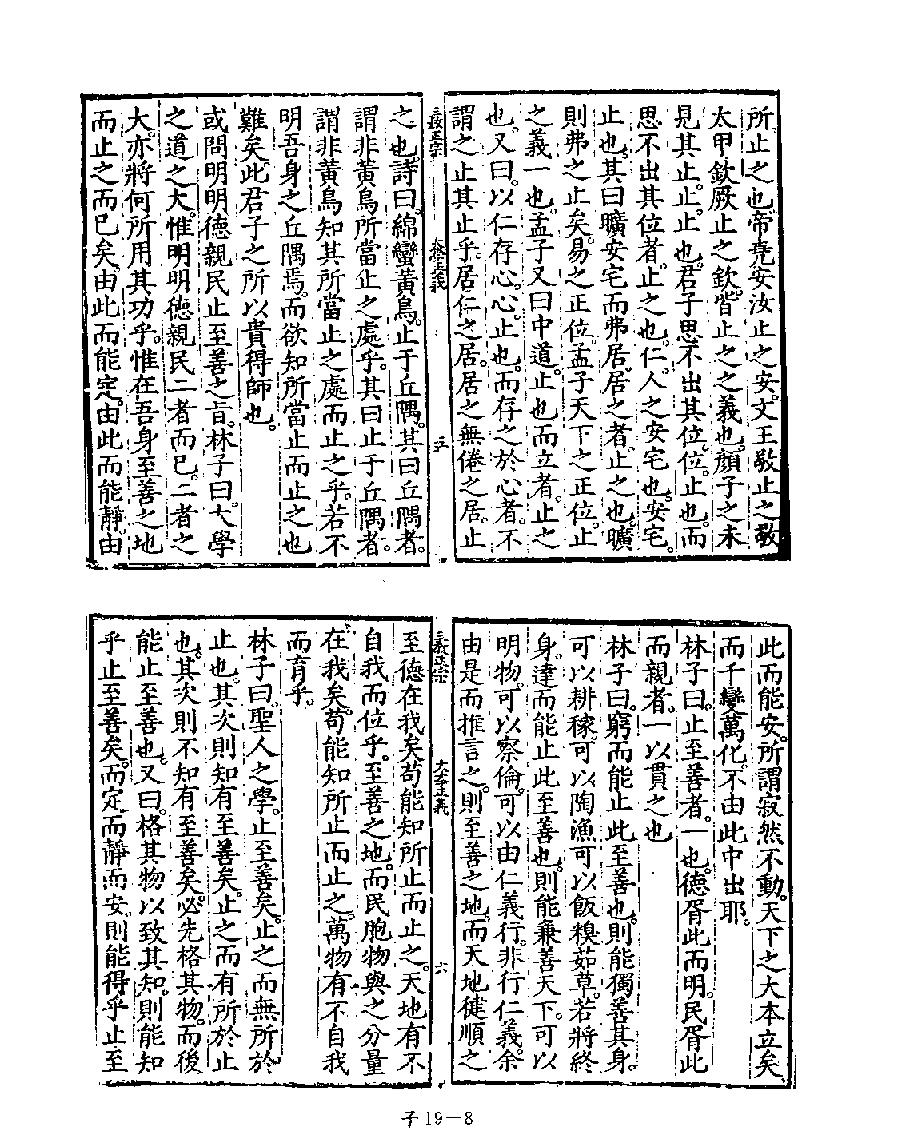 所止之也帝堯安汝止之安文王敬止之敬
太甲欽厥止之欽皆止之之義也顏子之未
見其止止也君子思不出其位位止也而
思不出其位者止之也仁人之安宅也安宅
止也其曰曠安宅而弗居居之者止之也曠
則弗之止矣易之正位孟子天下之正位止
之義一也孟子又曰中道止也而立者止之
也又曰以仁存心心止也而存之於心者不
謂之止其止乎居仁之居居之無倦之居止
大學正義
五
之也詩曰綿蠻黃鳥止于丘隅其曰丘隅者
謂非黃鳥所當止之處乎其曰止于丘隅者
謂非黃鳥知其所當止之處而止之乎若不
明吾身之丘隅焉而欲知所當止而止之也
難矣此君子之所以貴得師也
或問明明德親民止至善之旨林子曰大學
之道之大惟明明德親民二者而已二者之
大亦將何所用其功乎惟在吾身至善之地
而止之而已矣由此而能定由此而能靜由
此而能安所謂寂然不動天下之大本立矣
而千變萬化不由此中出耶
林子曰止至善者一也德胥此而明民胥此
而親者一以貫之也
林子曰窮而能止此至善也則能獨善其身
可以耕稼可以陶漁可以飯糗茹草若將終
身達而能止此至善也則能兼善天下可以
明物可以察倫可以由仁義行非行仁義余
由是而推言之則至善之地而天地徤順之
大學正義
六
至德在我矣苟能知所止而止之天地有不
自我而位乎至善之地而民胞物與之分量
在我矣苟能知所止而止之萬物有不自我
而育乎
林子曰聖人之學止至善矣止之而無所於
止也其次則知有至善矣止之而有所於止
也其次則不知有至善矣必先格其物而後
能止至善也又曰格其物以致其知則能知
乎止至善矣而定而靜而安則能得乎止至
子19—8